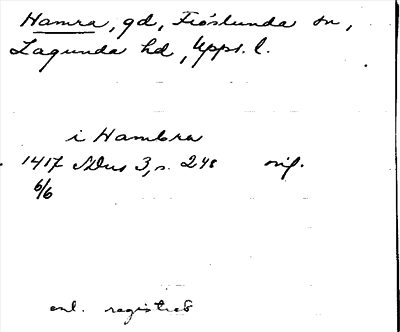 Hamra, gd, Fröslunda sn,
Lagunda hd, Upps. l.
i Hambra
1417 SDns 3, s. 248 orig.
6/6
enl. registret